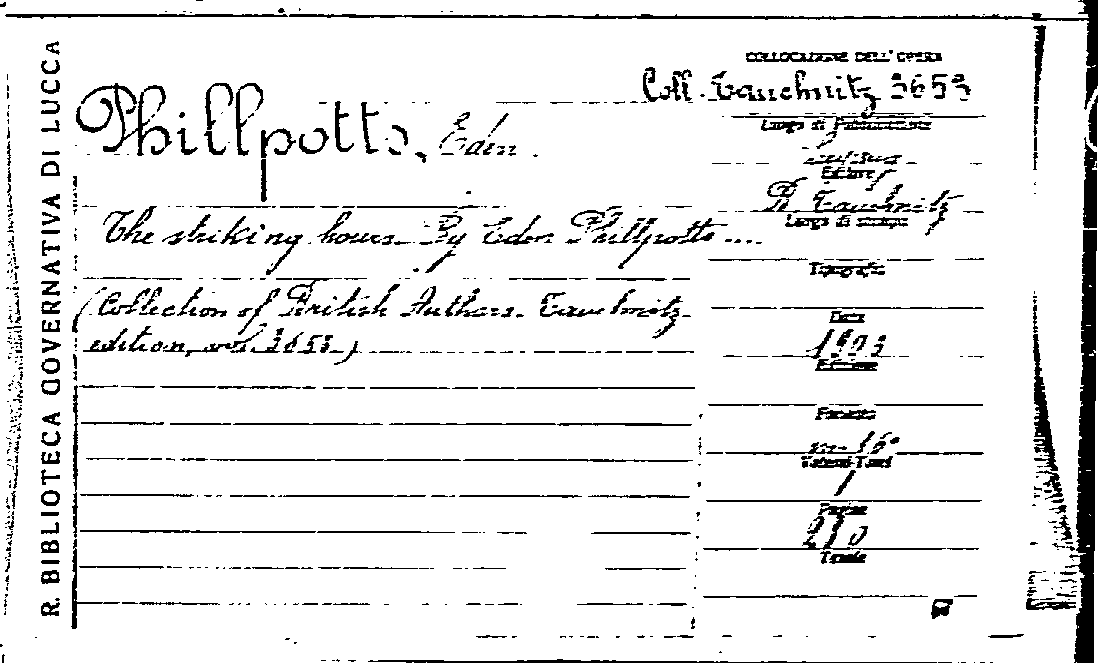 R. BIBLIOTECA GOVERNATIVA DI LUCCA
COLLOCAZIONE DELL' OPERA
Coll. Tauchnitz 3653
Phillpotts, Eden.
The striking hours. By Eden Phillpotts ....
(Collection of British Authors. Tauchnitz
edition, vol. 3653.)
Luogo di pubblicazione
Editore
B. Tauchnitz
Luogo di stampa
Tipografia
Data
1903
Edizione
Formato
in-16°
Volumi-Tomi
1
Pagine
270
Tavole